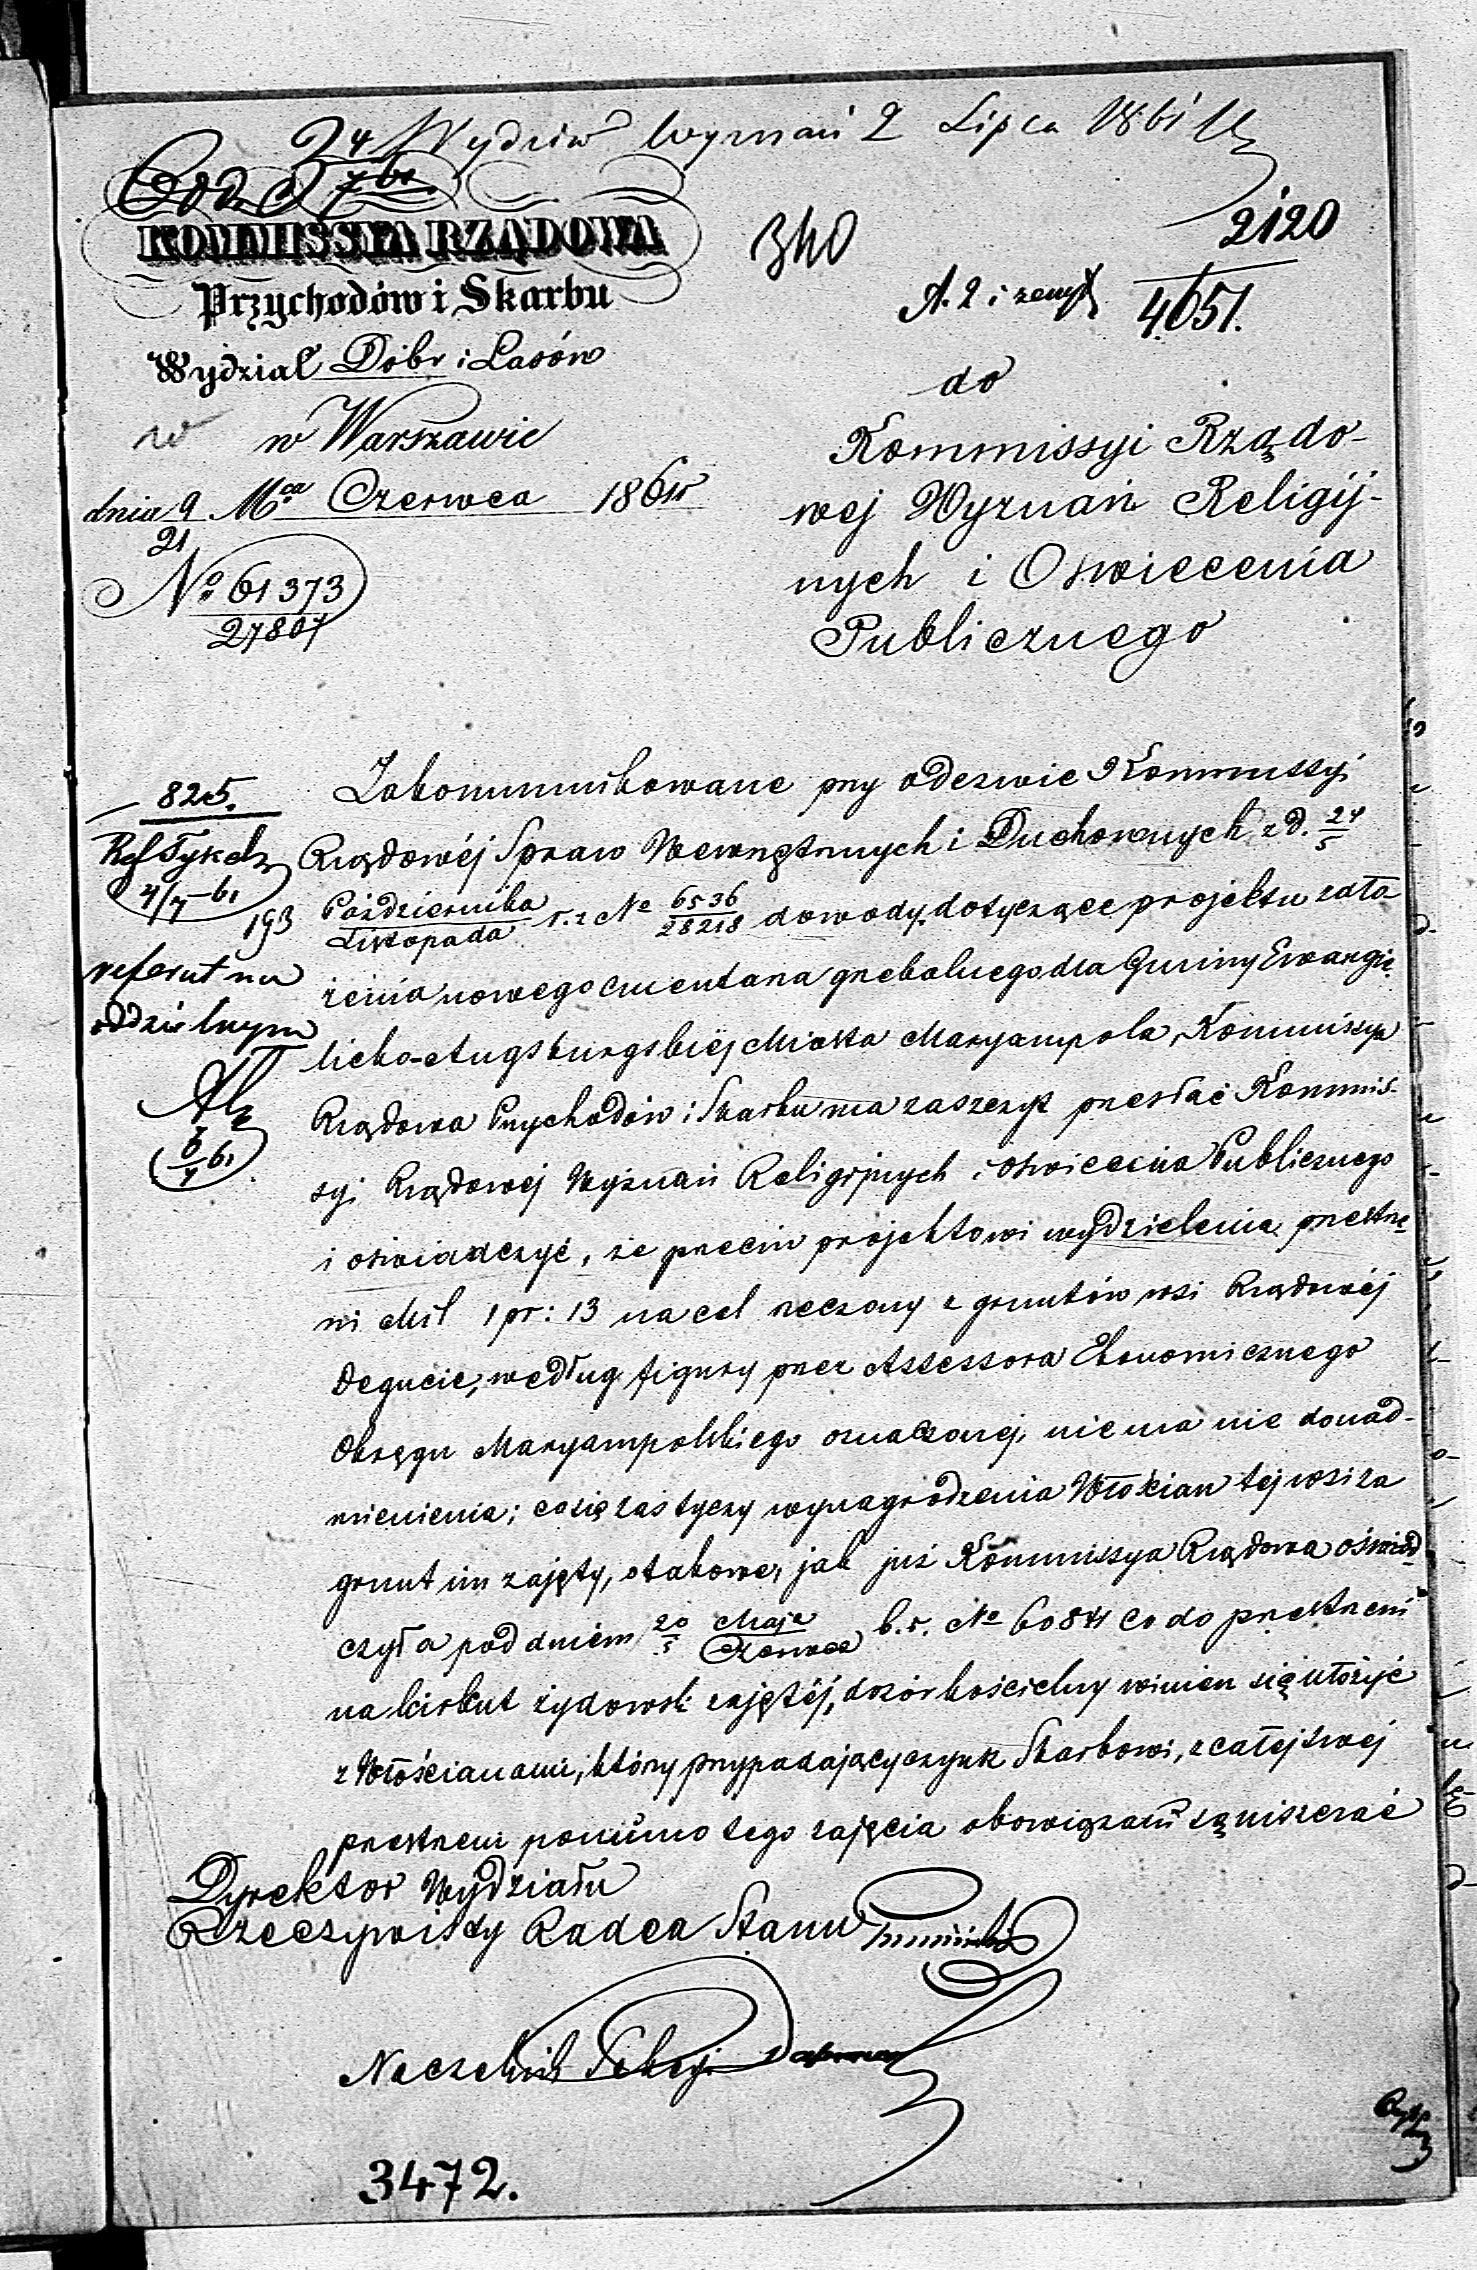 24 Wydział Wyznań 2 Lipca 1861
Odd. 7br
KOMMISSYA RZĄDOWA
Przychodów i Skarbu
Wydział Dóbr i Lasów
w Warszawie
dnia 9/21 Mca Czerwca 1861 r
No 61373/27807
340
2120
A. 2 i zeszyt 4651.
do
Kommissyi Rządo-
wej Wyznań Religij-
nych i Oswiecenia
Publicznego
825.
4/7 61
193
referat na
oddzielnym
5/7 61
Zakommunikowane przy odezwie Kommissyi
Rządowéj Spraw Wewnętrznych i Duchownych z d. 24/5
Października/Listopada r. z No 6536/28218 dowody, dotyczące projektu zało
żenia nowego cmentarza grzebalnego dla Gminy Ewangie
licko-Augsburgskiéj Miasta Maryampola, Kommissya
Rządowa Przychodów i Skarbu ma zaszczyt przesłać Kommis-
syi Rządowej Wyznań Religijnych i Oswiecenia Publicznego
i oswiadczyć, że przeciw projektowi wydzielenia przestrze
ni Mil 1 pr: 13 na cel rzeczony z gruntów wsi Rządowéj
Degucie, według figury przez Assessora Ekonomicznego
Okręgu Maryampolskiego oznaczonej, nie ma nic do nad-
mienienia; co się zas tyczy wynagrodzenia Włościan tej wsi za
grunt im zajęty, o takowe, jak już Kommissya Rządowa oświad
czyła pod dniem 20/5 Maja/Czerwca b. r. No 60841 co do przestrzeni
na kirkut żydowski zajętéj, dozór kościelny winien się ułożyć
z Włościanami, którzy przypadający czynsz Skarbowi, z całej swej
przestrzeni pomimo tego zajęcia obowiązani są uiszczać
Dyrektor Wydziału
Rzeczywisty Radca Stanu
Naczelnik Sekcyi
3472.